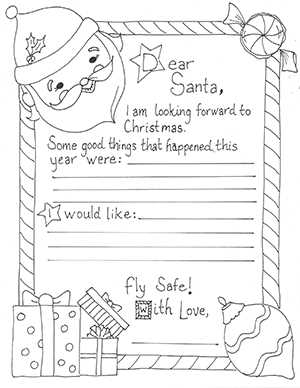 Dear
Santa,
I am looking forward to
Christmas.
Some good things that happened this
year were:
I would like:
Fly Safe!
With Love,